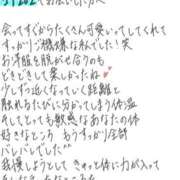 会ってすぐからたくさん可愛いってしてくれて
すっかりご機嫌な私でした！笑
お洋服を脱がせ合うのも
どきどきして楽しかったね
少しずつ近くなっていく距離と
触れるたびに分かってしまう体温
そしてとっても敏感なあなたの体
好きなところ もうすっかり全部
バレバレでした
我慢しようとして きゅっと体に力が入って